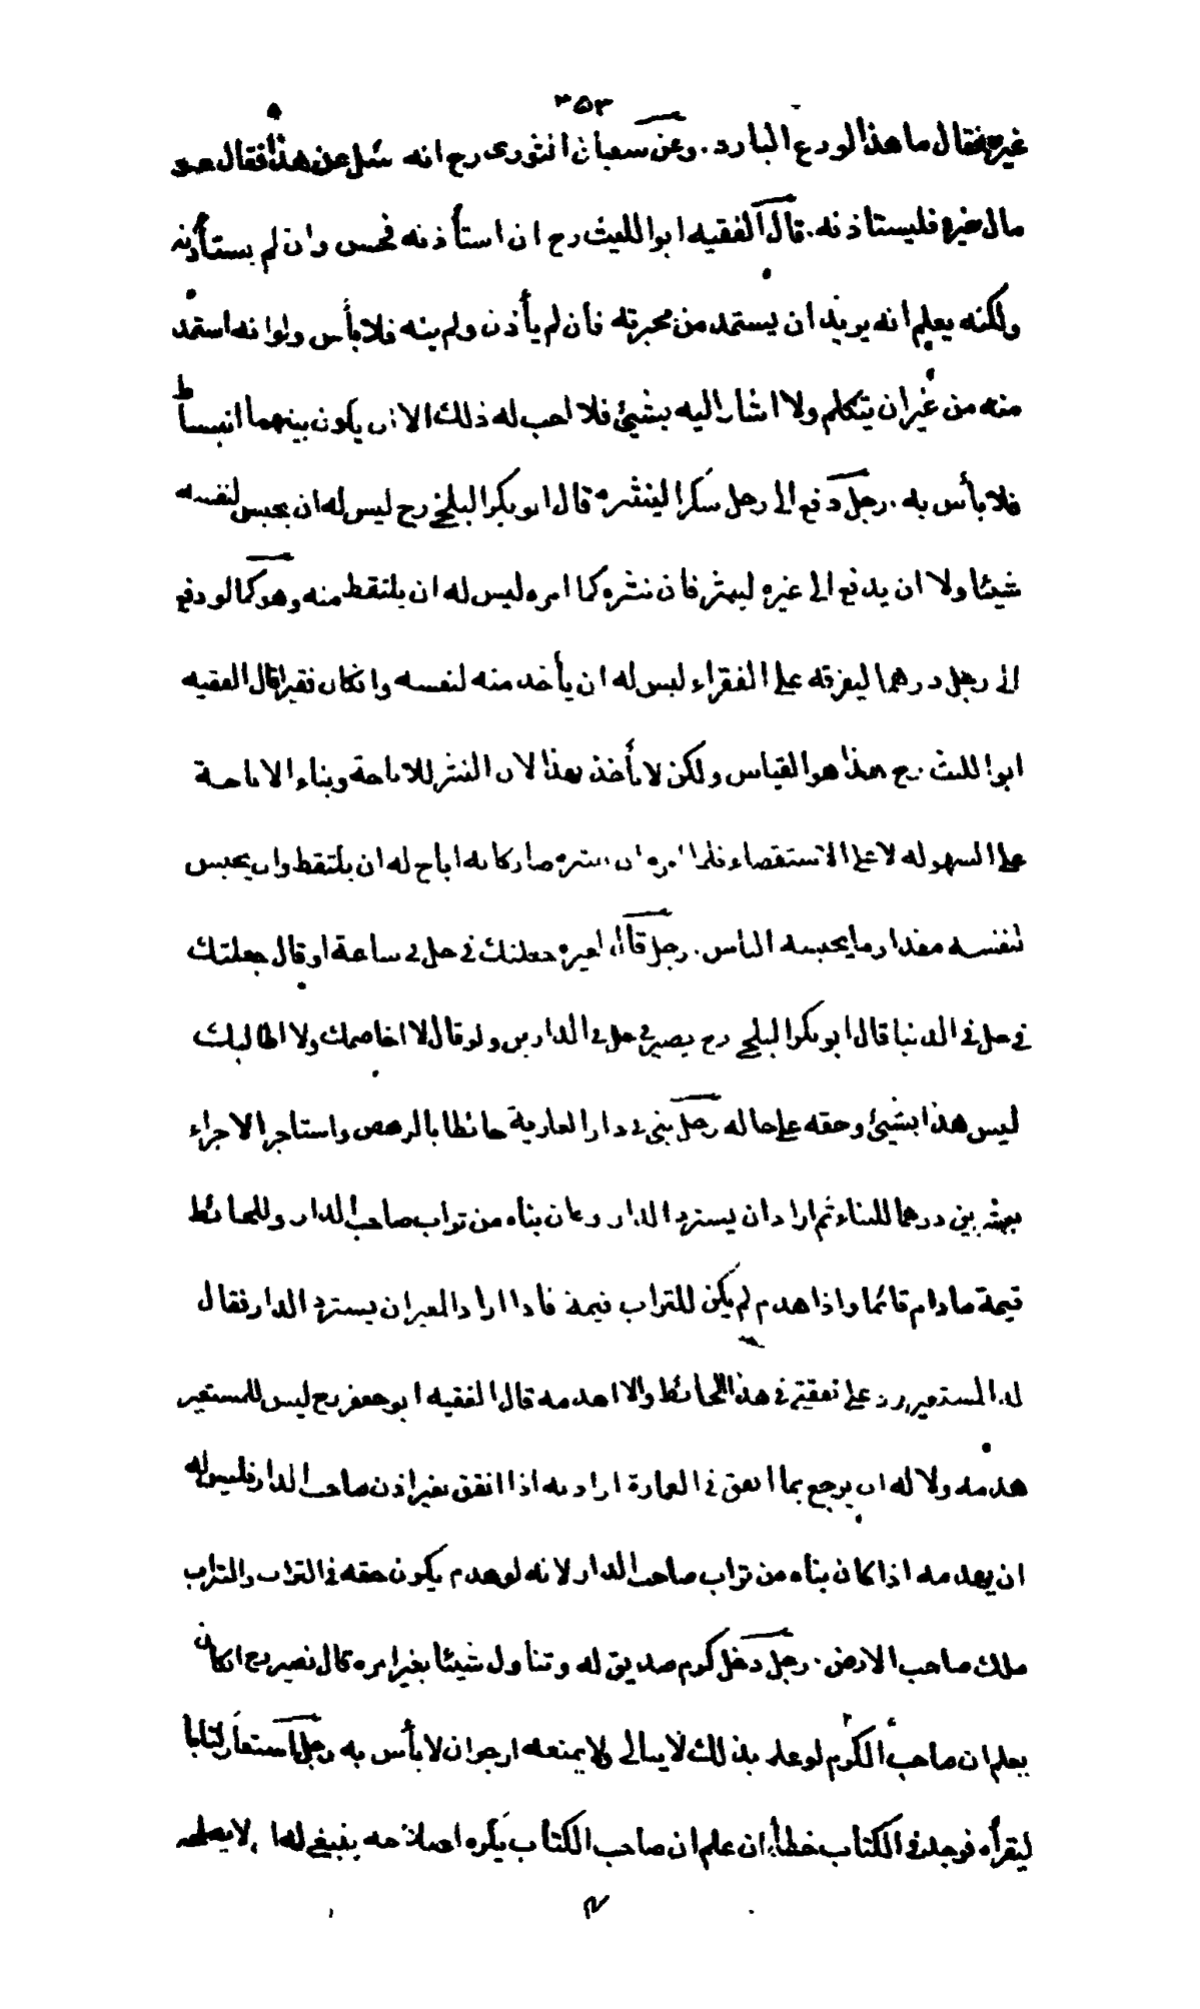 ٣٥٣
غيره فقال ما هذا الورع البارد . وعن سفيان الثوري رح انه سئل عن هذا فقال هو
مال غيره فليستاذنه . قال الفقيه ابو الليث رح ان استأذنه فحسن وان لم يستأذنه
ولكنه يعلم انه يريد ان يستمد من محبرته فان لم يأذن ولم ينه فلا بأس ولو انه استمد
منه من غير ان يتكلم ولا اشار اليه بشيئ فلا احب له ذلك الا ان يكون بينهما انبساط
فلا بأس به . رجل دفع الى رجل سكرا لينثره قال ابو بكر البلخي رح ليس له ان يحبس لنفسه
شيئا ولا ان يدفع الى غيره لينثر فان نثره كما امره ليس له ان يلتقط منه وهو كما لو دفع
الى رجل درهما ليفرقه على الفقراء ليس له ان يأخذ منه لنفسه وان كان فقيرا قال الفقيه
ابو الليث رح هذا هو القياس ولكن لا نأخذ بهذا لان النثر للاباحة وبناء الاباحة
على السهولة لا على الاستقصاء فلما امره ان ينثره صار كانه اباح له ان يلتقط وان يحبس
لنفسه مقدار ما يحبسه الناس . رجل قال لغيره جعلتك في حل في ساعة او قال جعلتك
في حل في الدنيا قال ابو بكر البلخي رح يصير في حل في الدارين ولو قال لا اخاصمك ولا اطالبك
ليس هذا بشيئ وحقه على حاله رجل بنى في دار العارية حائطا بالرهص واستاجر الاجراء
بعشرين درهما للبناء ثم اراد ان يسترد الدار وكان بناه من تراب صاحب الدار وللحائط
قيمة ما دام قائما واذا هدم لم يكن للتراب قيمة فاذا اراد المعير ان يسترد الدار فقال
له المستعير رد على نفقتي في هذا الحائط والا اهدمه قال الفقيه ابو جعفر رح ليس للمستعير
هدمه ولا له ان يرجع بما انفق في العمارة اراد به اذا انفق بغير اذن صاحب الدار فليس له
ان يهدمه اذا كان بناه من تراب صاحب الدار لانه لو هدم يكون حقه في التراب والتراب
ملك صاحب الارض . رجل دخل كرم صديق له وتناول شيئا بغير امره قال نصير رح ان كان
يعلم ان صاحب الكرم لو علم بذلك لا يبالي ولا يمنعه ارجو ان لا بأس به رجل استعار كتابا
ليقرأه فوجد في الكتاب خطأ ان علم ان صاحب الكتاب يكره اصلاحه ينبغي له ا لا يصلحه